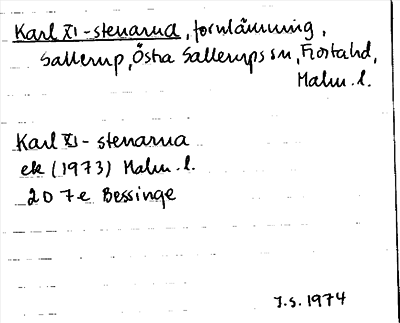 Karl XI-stenarna, fornlämning,
Sallerup, Östra Sallerups sn, Frostahd,
Malm. l.
Karl XI-stenarna
ek (1973) Malm. l.
2D 7e Bessinge
J.S. 1974